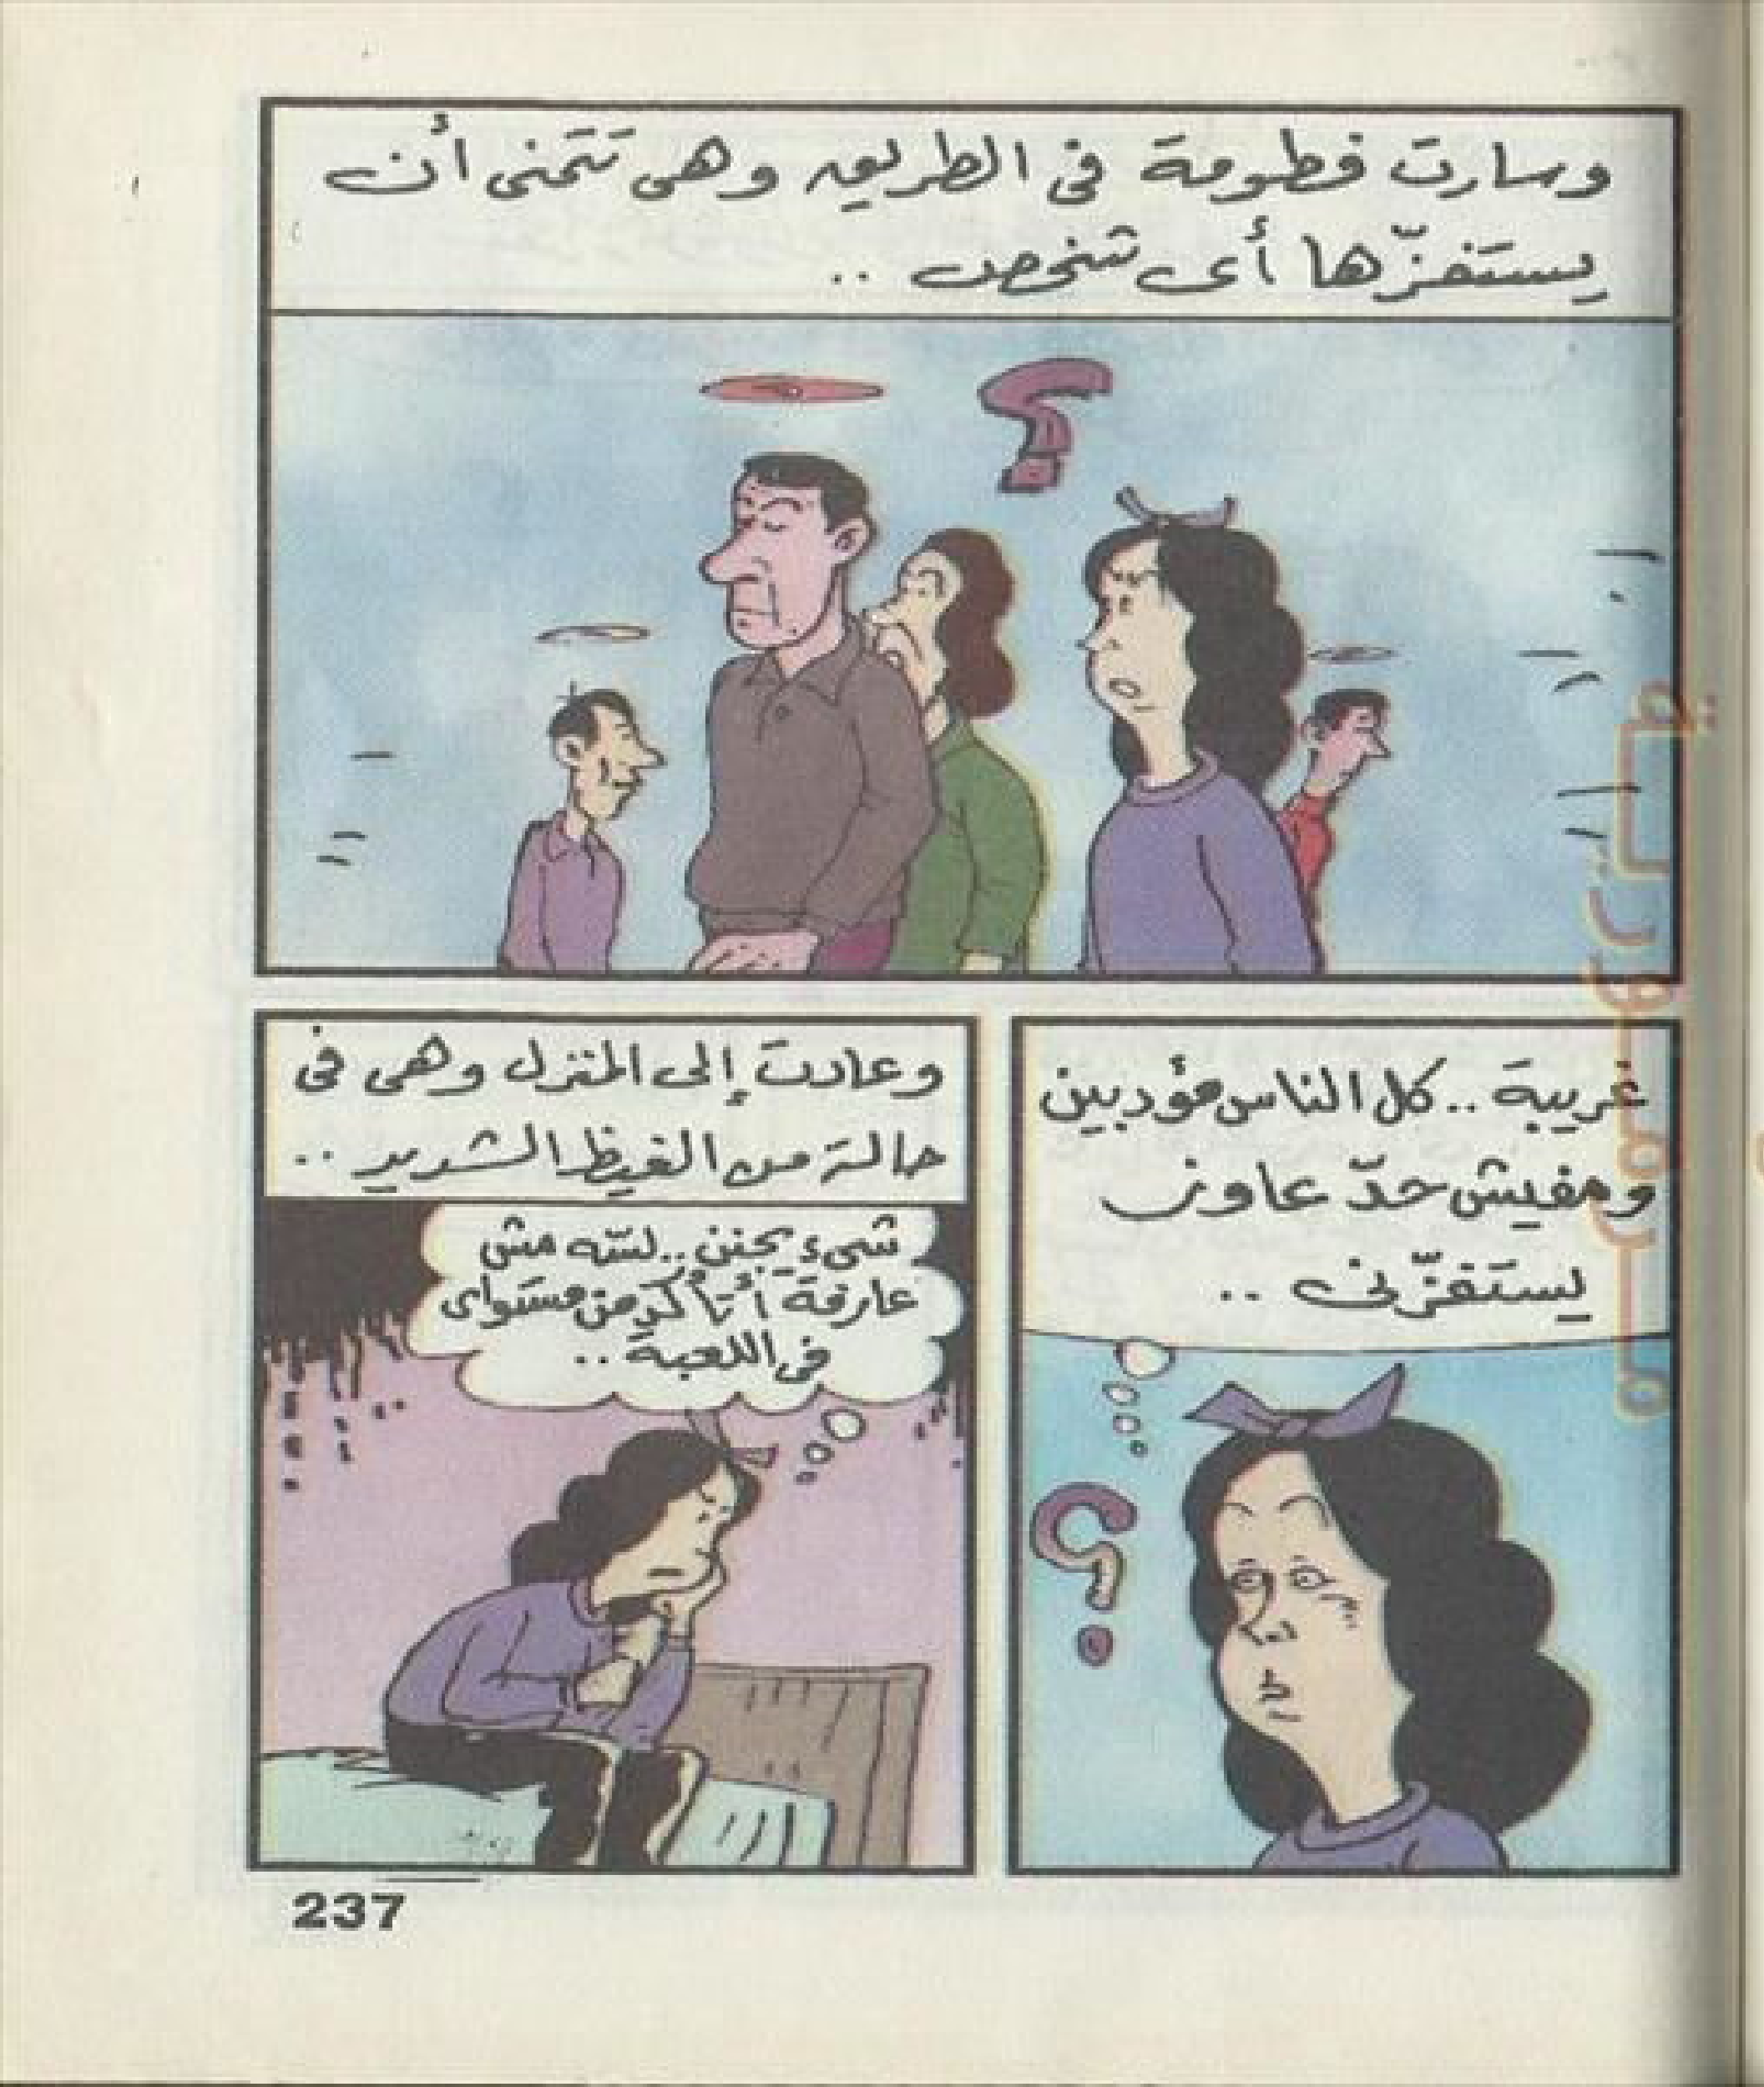 وسارت فطومة فى الطريق وهى تتمنى أن
يستفزّها أى شخص ..
؟
غريبة .. كل الناس مؤدبين
ومفيش حدّ عاوز
يستفزّنى ..
؟
وعادت إلى المنزل وهى فى
حالة من الغيظ الشديد ..
شىء يجنن .. لسّه مش
عارفة أتأكد من مستواى
فى اللعبة ..
237